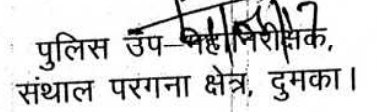 पुलिस उप–महानिरीक्षक,
संथाल परगना क्षेत्र, दुमका।